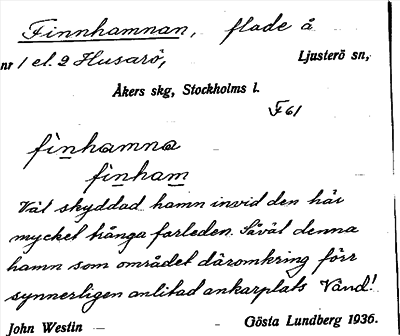 Finnhamnan, flade å
nr 1 el. 2 Husarö, Ljusterö sn,
Åkers skg, Stockholms l.
F61
fìnhamna
fìnham
Väl skyddad hamn invid den här
mycket trånga farleden. Såväl denna
hamn som området däromkring förr
synnerligen anlitad ankarplats Vänd!
John Westin — Gösta Lundberg 1936.